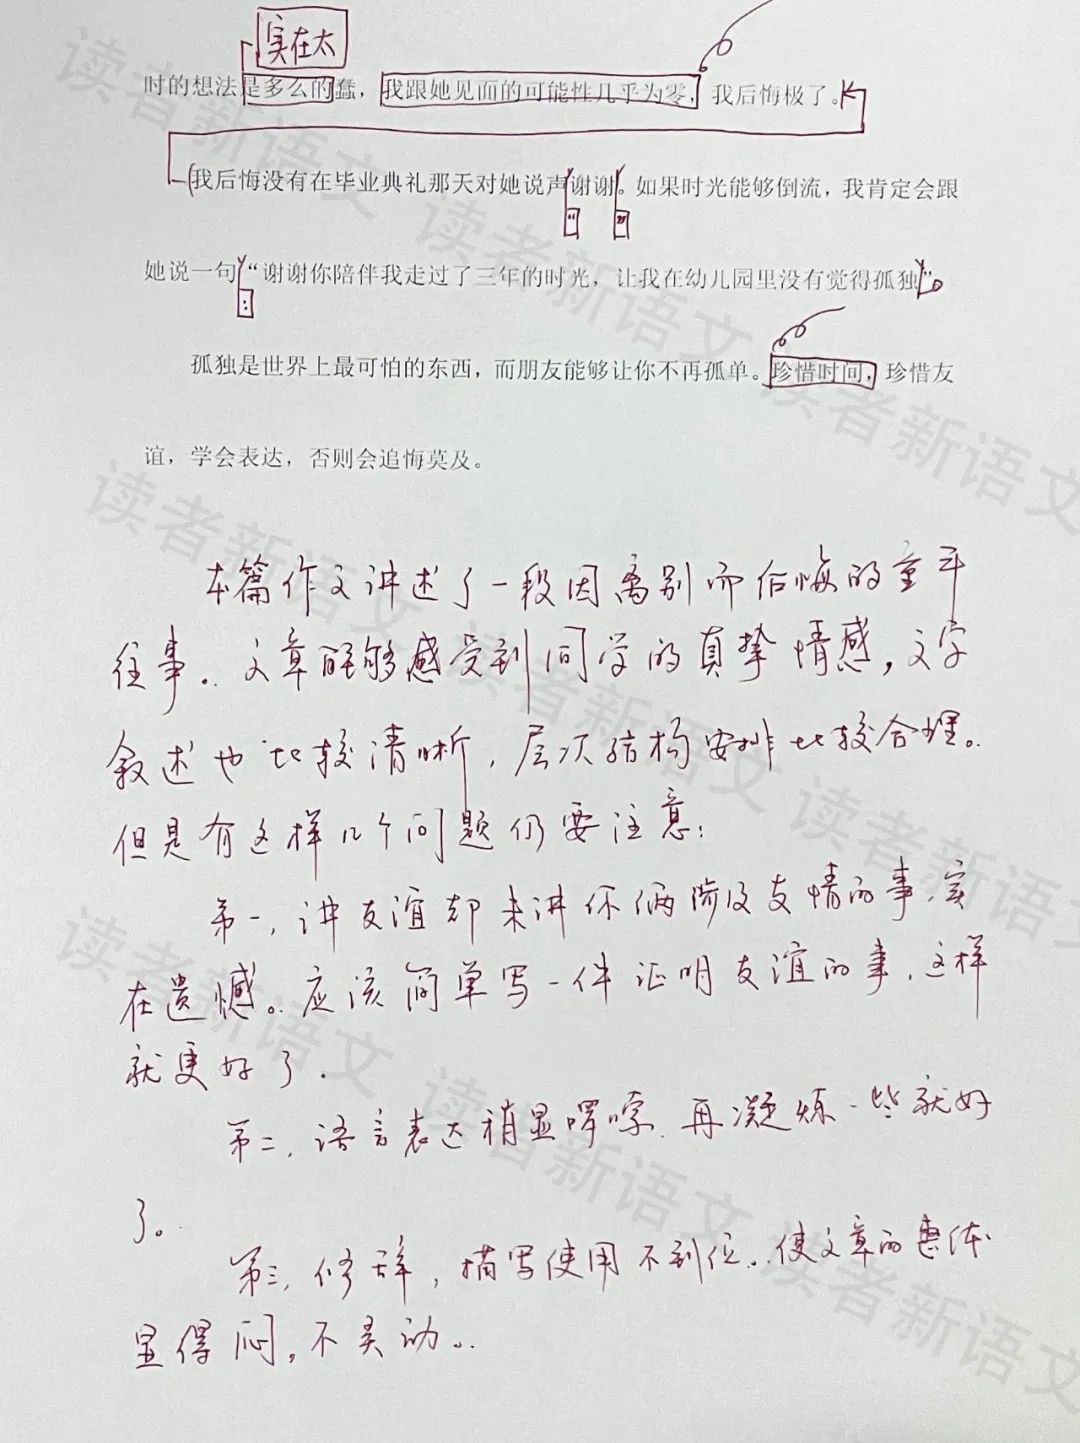 实在太
时的想法是多么的蠢，我跟她见面的可能性几乎为零，我后悔极了。
我后悔没有在毕业典礼那天对她说声谢谢。如果时光能够倒流，我肯定会跟
“ ”
她说一句“谢谢你陪伴我走过了三年的时光，让我在幼儿园里没有觉得孤独”。
：
孤独是世界上最可怕的东西，而朋友能够让你不再孤单。珍惜时间，珍惜友
谊，学会表达，否则会追悔莫及。
本篇作文讲述了一段因离别而后悔的童年
往事。文章能够感受到同学的真挚情感，文字
叙述也比较清晰，层次结构安排比较合理。
但是有这样几个问题仍要注意：
第一，讲友谊却未讲你俩涉及友情的事，实
在遗憾。应该简单写一件证明友谊的事，这样
就更好了.
第二，语言表达稍显啰嗦，再凝炼一些就好
了。
第三，修辞，描写使用不到位。使文章的整体
显得闷，不灵动。
读者新语文
读者新语文
读者新语文
读者新语文
读者新语文
读者新语文
读者新语文
读者新语文
读者新语文